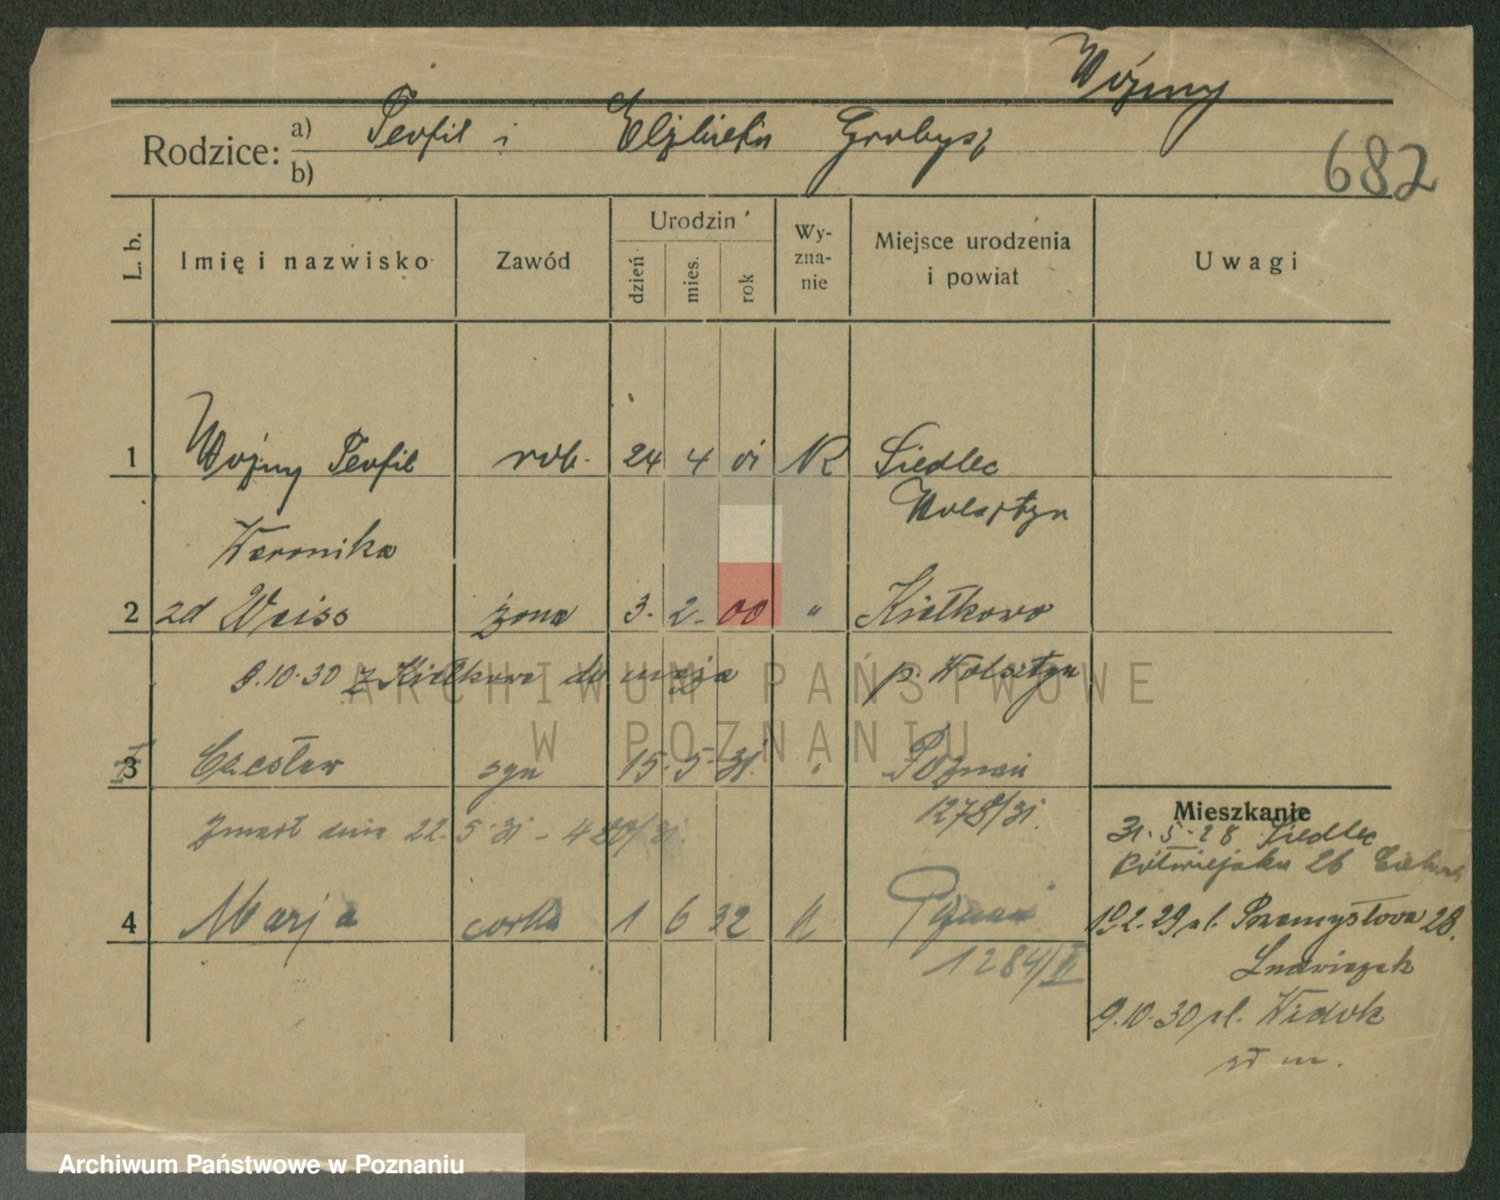 Wójny
Rodzice: a) Teofil i Elżbieta Grobys
b)
682
L. b.
Imię i nazwisko
Zawód
Urodzin
dzień
mies.
rok
Wy-
zna-
nie
Miejsce urodzenia
i powiat
Uwagi
1 Wójny Teofil rob. 24 4 01 K Siedlec
Wolsztyn
Weronika
2 zd Weiss żona 3. 2. 00 " Kiełkowo
9.10.30 z Kiełkowa do męża p. Wolsztyn
3 Czesław syn 15. 5. 31. " Poznań
1278/31.
Zmarł dnia 22.5.31 - 480/31.
Mieszkanie
31.5.28 Siedlec
26
4 Marja córka 1 6 32 Poznań
1284/II
19.2.29 ul. Przemysłowa 28.
Ludwiczak
9.10.30 ul. Widok
ARCHIWUM PAŃSTWOWE
W POZNANIU
Archiwum Państwowe w Poznaniu